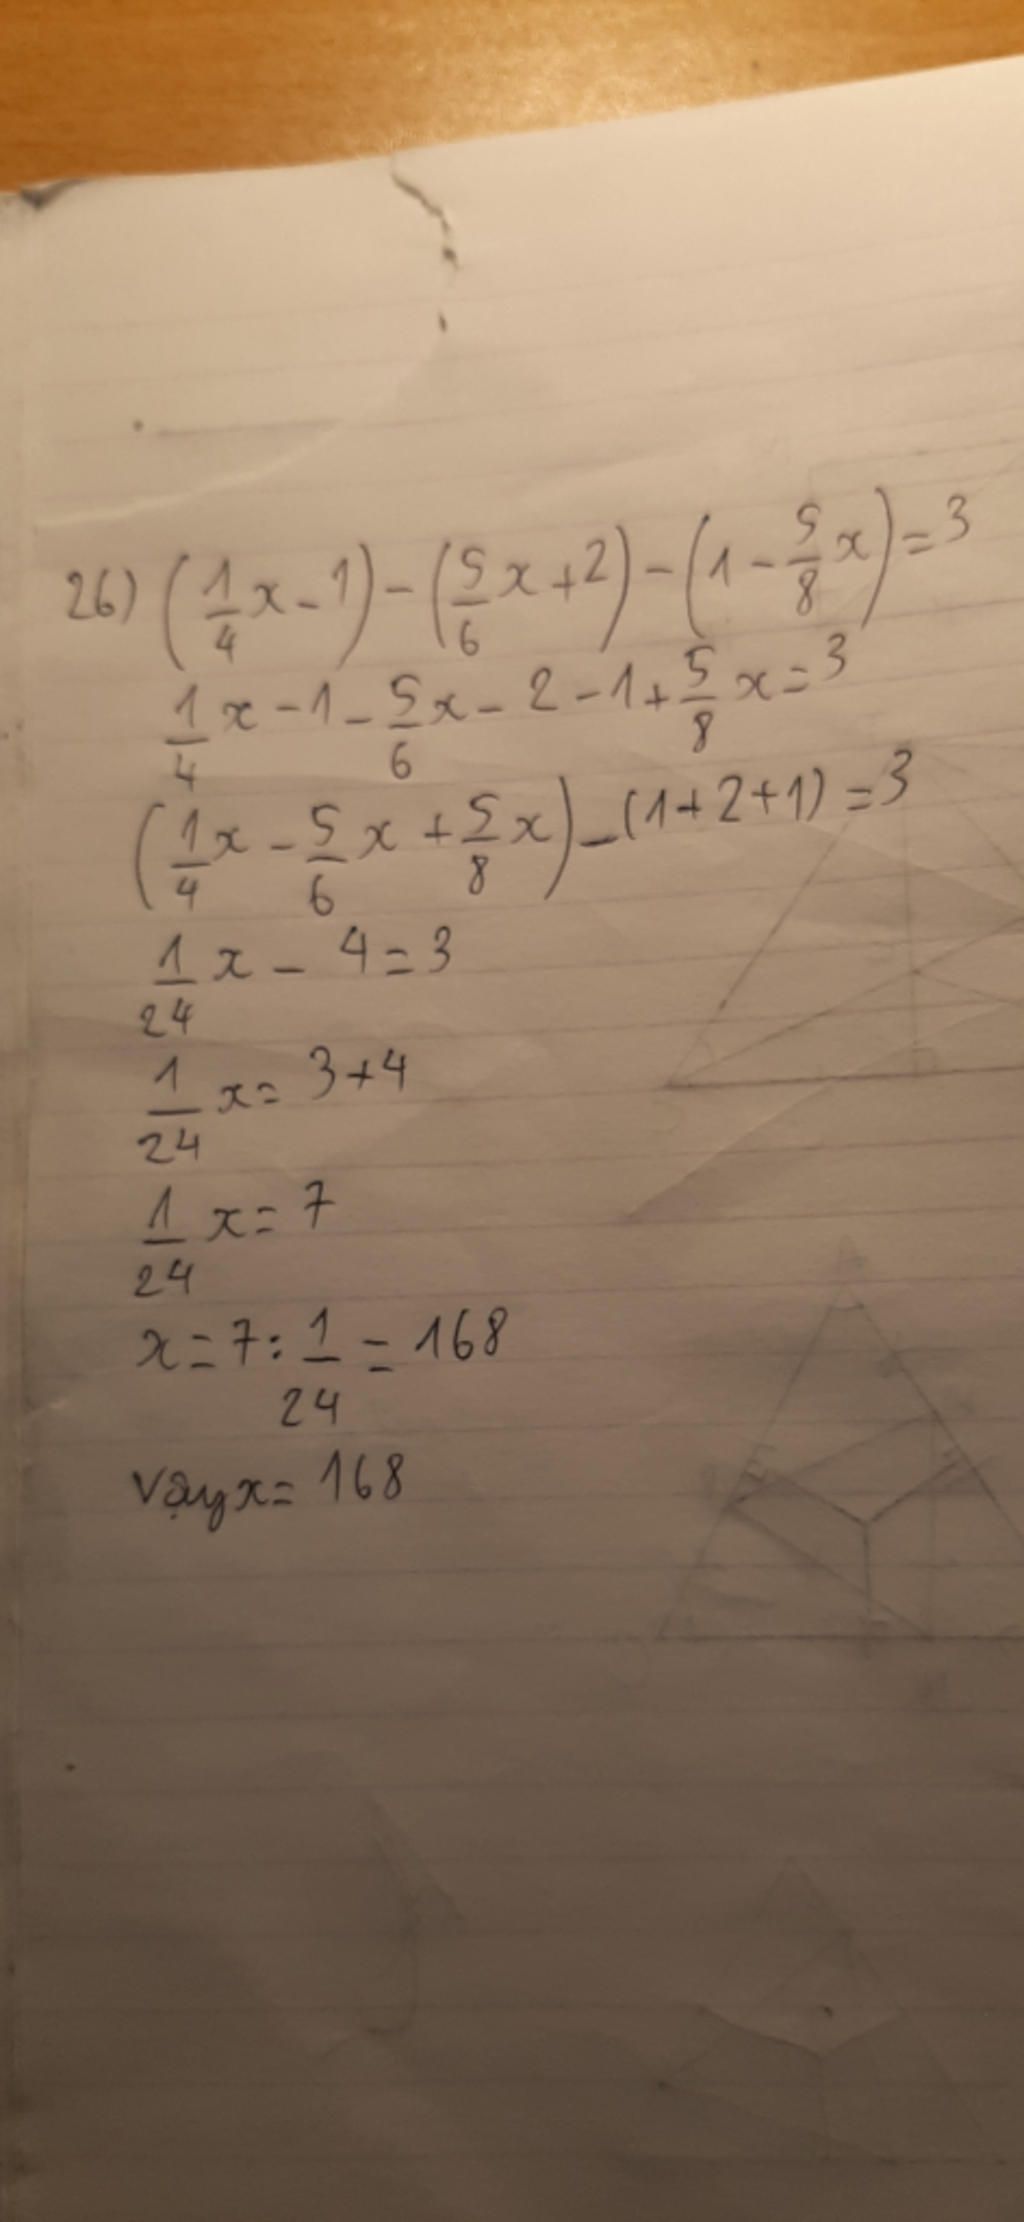 26) (1/4 x - 1) - (5/6 x + 2) - (1 - 5/8 x) = 3
1/4 x - 1 - 5/6 x - 2 - 1 + 5/8 x = 3
(1/4 x - 5/6 x + 5/8 x) - (1 + 2 + 1) = 3
1/24 x - 4 = 3
1/24 x = 3 + 4
1/24 x = 7
x = 7 : 1/24 = 168
Vậy x = 168